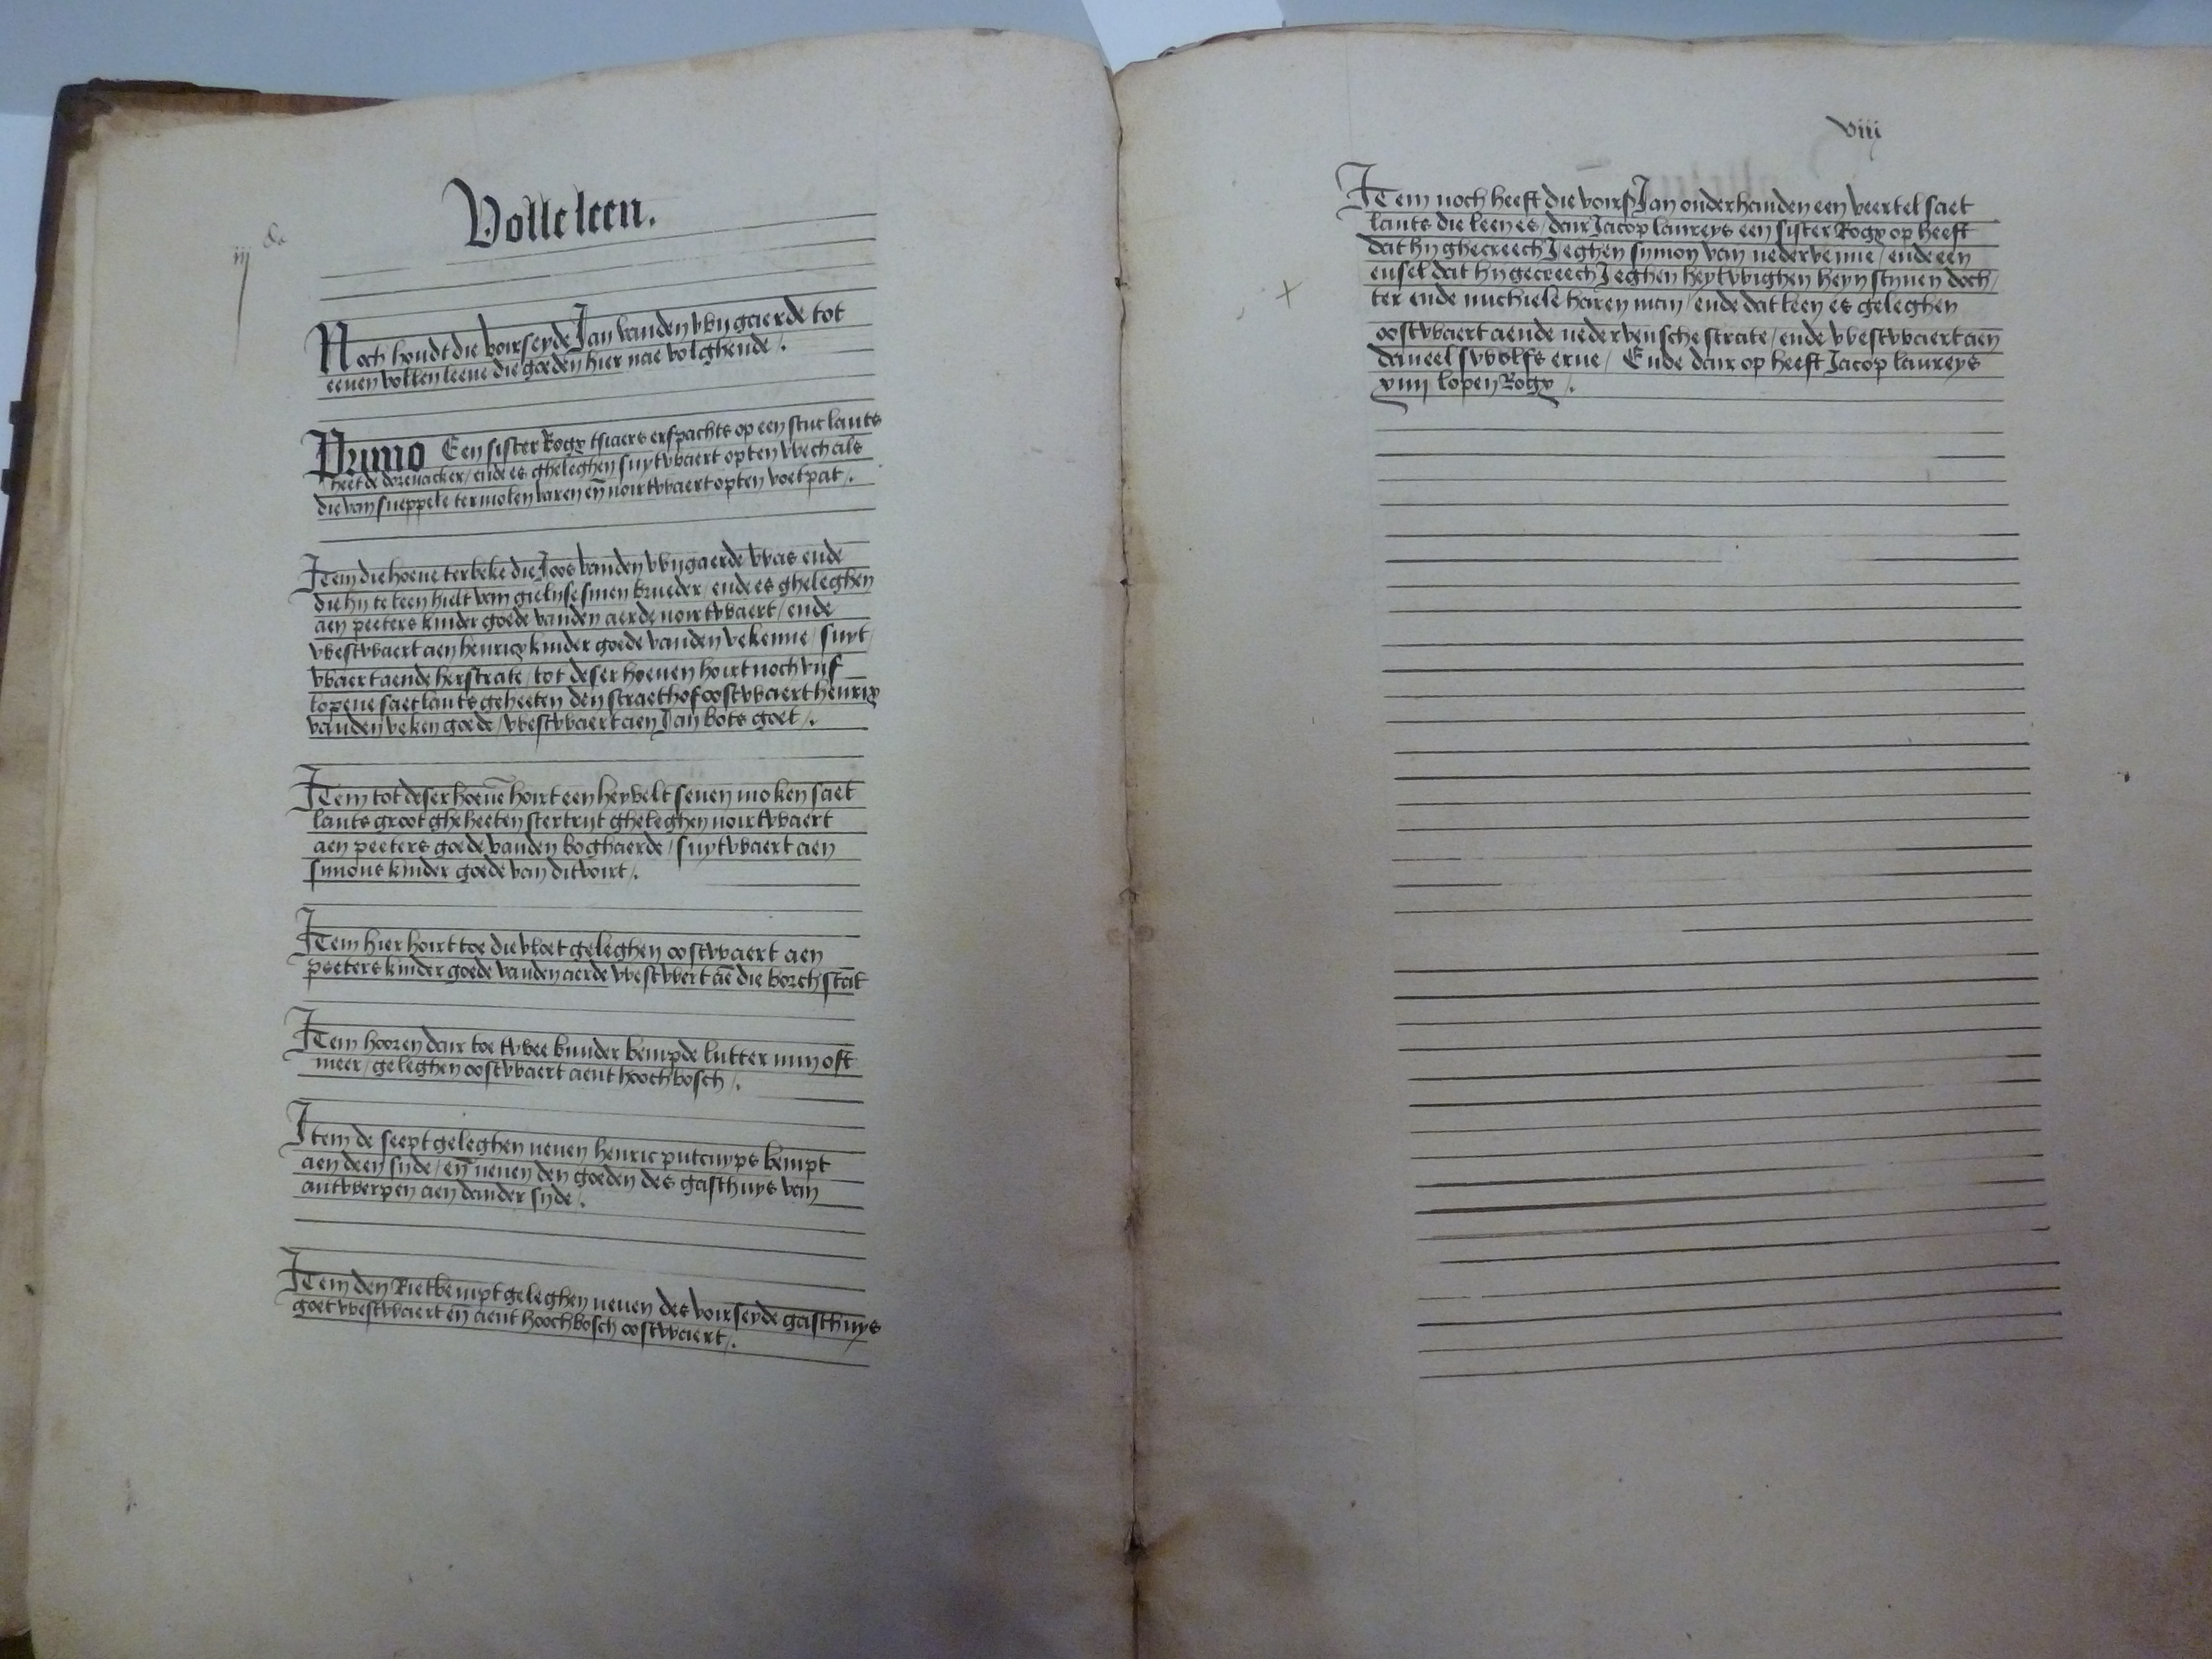 Volle leen.
iij
Noch houdt die voirseyde Jan vanden wyngaerde tot
eenen vollen leene die goeden hier nae volghende /.
Primo Een sister Rogx tsiaers erfpachts op een stuc lants
heet de dorenacker / ende es gheleghen suytwaert opten wech als
die van sneppele ter molen varen en̄ noirtwaert opten voetpat /.
Item die hoeue ter beke die Joos vanden wyngaerde was ende
die hy te leen hielt van gielyse sinen brueder / ende es gheleghen
aen peeters kinder goede vanden aerde noirtwaert / ende
westwaert aen henricx kinder goede vanden vekenne / suyt
waert aende herstrate / tot deser hoeuen hoirt noch vijf
lopene saetlants geheeten den straethof oostwaert henrix
vanden veken goede / westwaert aen Jan bots goet /.
Item tot deser hoeuē hoirt een heyvelt seuen moken saet
lants groot gheheeten stertryt gheleghen noirtwaert
aen peeters goede vanden boghaerde / suytwaert aen
simons kinder goede van ditvoirt /.
Item hier hoirt toe die vloet geleghen oostwaert aen
peeters kinder goede vanden aerde westwert aē die borch stat
Item hooren dair toe twee bunder bempde lutter min oft
meer / geleghen oostwaert aent hoochbosch /.
Item de seept geleghen neuen henric putcuyps bempt
aen deen syde / en̄ neuen den goeden des gasthuys van
antwerpen aen dander syde /.
Item den Rietbempt geleghen neuen des voirseyde gasthuys
goet westwaert en̄ aent hoochbosch oostwaert /.
viij
Item noch heeft die voirs Jan onderhanden een veertel saet
lants die leen es / dair Jacop laureys een sister Rogx op heeft
dat hy ghecreech Jeghen symon van nedervenne / ende een
eusel dat hy gecreech Jeghen heytwighen heyn stynen doch
ter ende michiele haren man / ende dat leen es geleghen
oostwaert aende nedervensche strate / ende westwaert aen
daneel swolfs erue / Ende dair op heeft Jacop laureys
xiiij lopen Rogx /.